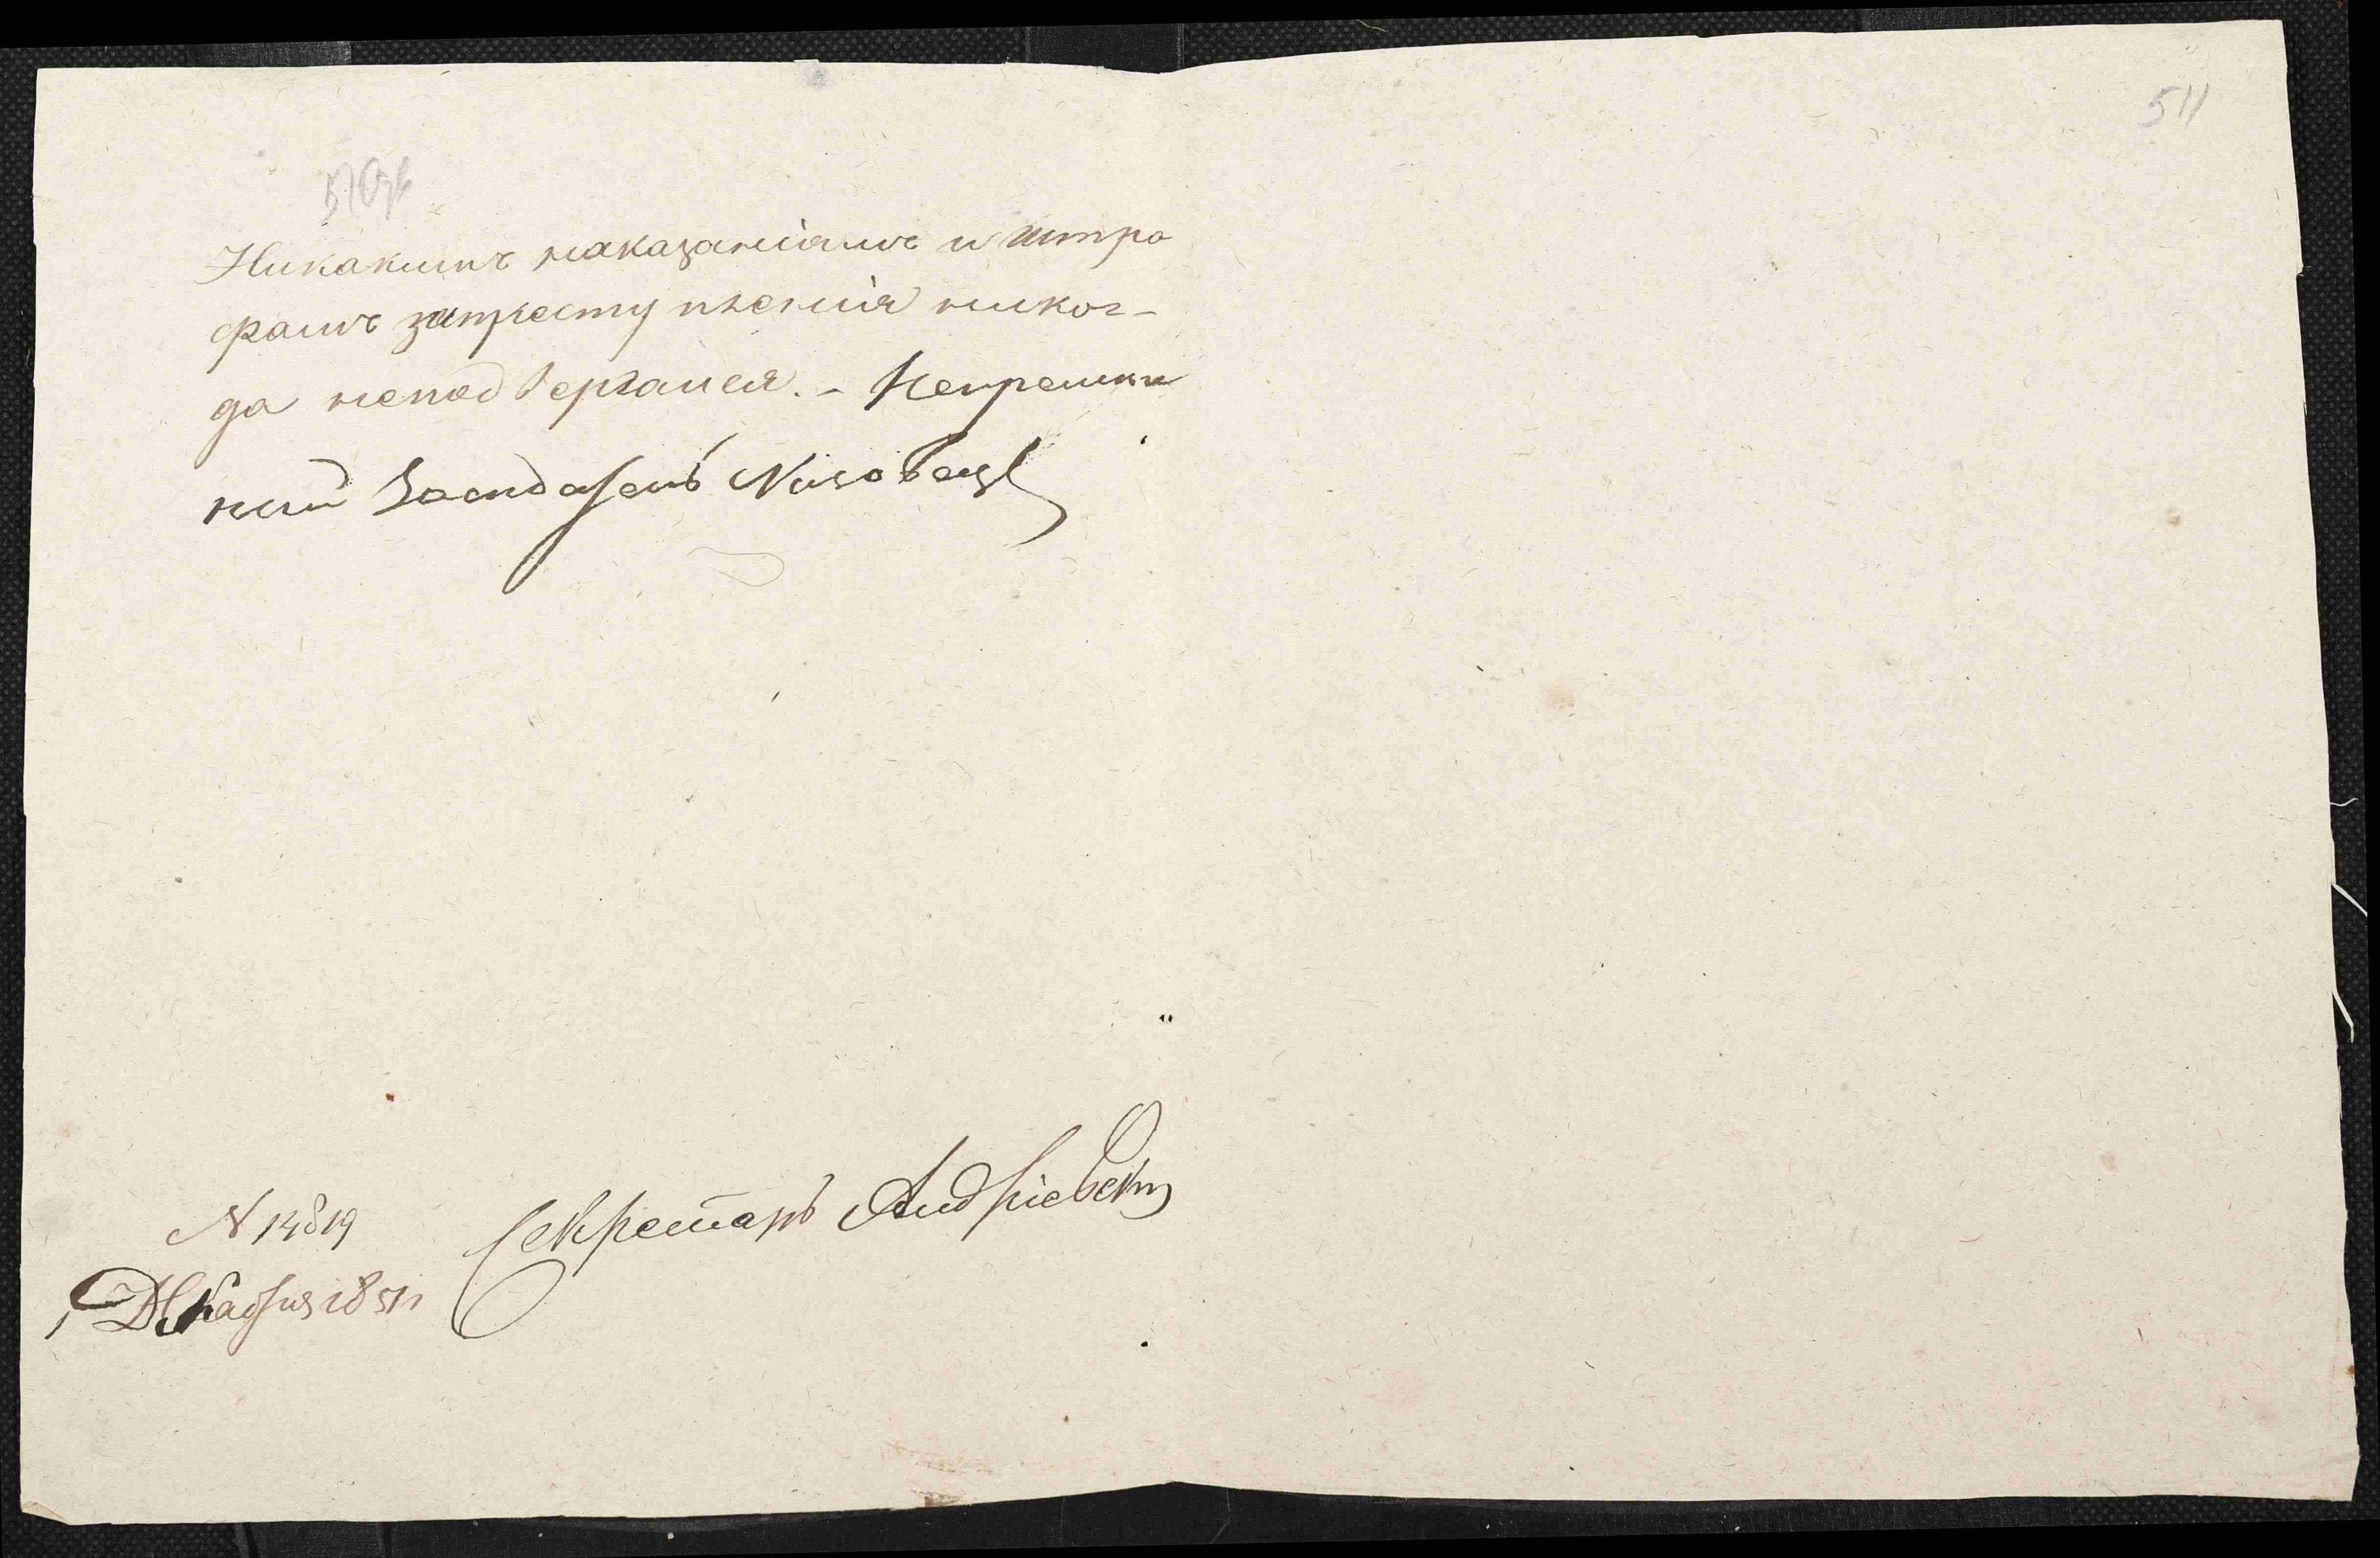 511
510зв
Никакимъ наказаніямъ и штра
фамъ запреступленія никог-
да неподвергался. - Непремѣн
ный Засѣдатель
N 14819
Декабря 1851 г
Секретарь Андріевскій